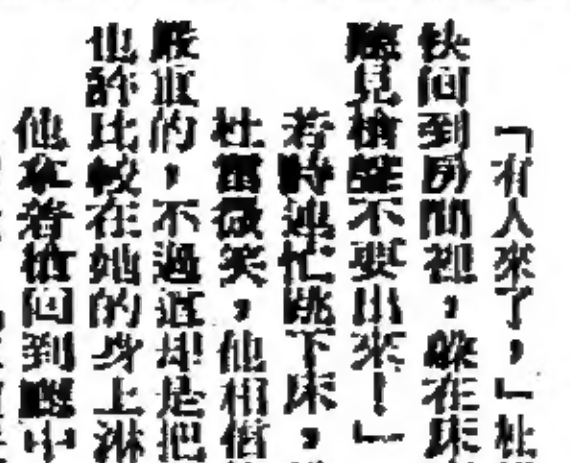 「有人來了，」杜
快回到房間裡，躲在床
聽見槍聲不要出來！」
若時連忙跳下床，
杜雷微笑，他相信
嚴重的，不過這却是把
也許比較在她的身上淋
他拿着槍回到廳中